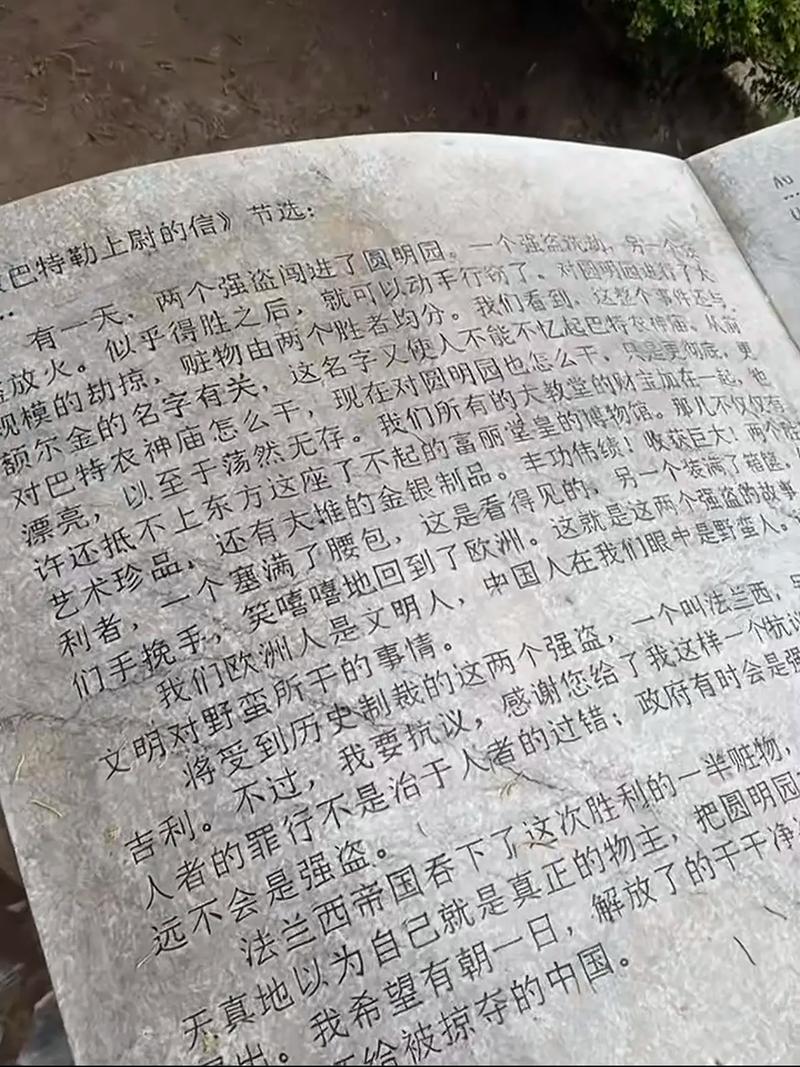 巴特勒上尉的信》 节选：
有一天，两个强盗闯进了圆明园。一个强盗洗劫，另一个强
盗放火。似乎得胜之后，就可以动手行窃了。对圆明园进行了大
规模的劫掠，赃物由两个胜者均分。我们看到，这整个事件还与
额尔金的名字有关，这名字又使人不能不忆起巴特农神庙。从前
对巴特农神庙怎么干，现在对圆明园也怎么干，只是更彻底，更
漂亮，以至于荡然无存。我们所有的大教堂的财宝加在一起，也
许还抵不上东方这座了不起的富丽堂皇的博物馆。那儿不仅仅有
艺术珍品，还有大堆的金银制品。丰功伟绩！收获巨大！两个胜
利者，一个塞满了腰包，这是看得见的，另一个装满了箱箧。
们手挽手，笑嘻嘻地回到了欧洲。这就是这两个强盗的故事
我们欧洲人是文明人，中国人在我们眼中是野蛮人。
文明对野蛮所干的事情。
将受到历史制裁的这两个强盗，一个叫法兰西，另
吉利。不过，我要抗议，感谢您给了我这样一个抗议
人者的罪行不是治于人者的过错；政府有时会是强
远不会是强盗。
法兰西帝国吞下了这次胜利的一半赃物，
天真地以为自己就是真正的物主，把圆明园
出。我希望有朝一日，解放了的干干净
给被掠夺的中国。
Au